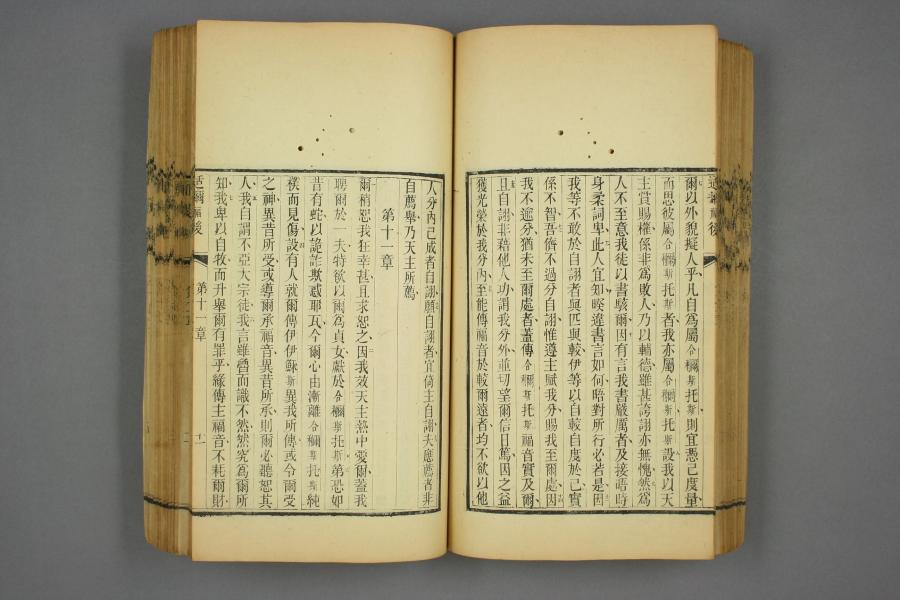 適爾福後
爾以外貌擬人乎凡自為屬合彌斯托斯則宜憑己度量
而思彼屬合彌斯托斯者我亦屬合彌斯托斯設我以天
主賞賜權係非為敗人乃以輔德雖甚誇詡亦無愧然為
人不至意我徒以書駭爾因有言我書嚴厲者及接晤時
身柔詞卑此人宜知睽違書言如何晤對所行必若是因
我等不敢於自詡者與匹與較伊等以自較自度於己實
係不智吾儕不過分自詡惟遵主賦我分賜我至爾處因
我不逾分猶未至爾處者蓋傳合彌斯托斯福音實及爾
且自詡非藉他人功謂我分外並切望爾信日篤因之益
獲光榮於我分內至能傳福音於較爾遠者均不欲以他
人分內已成者自詡願自詡者宜倚主自詡夫應薦者非
自薦舉乃天主所薦
第十一章
爾稍恕我狂幸甚且求恕之因我效天主熱中愛爾蓋我
聘爾於一夫特欲以爾為貞女獻於合彌斯托斯第恐如
昔有蛇以詭詐欺惑耶瓦今爾心由漸離合彌斯托斯純
樸而見傷設有人就爾傳伊伊穌斯異我所傳或令爾受
之神異昔所受或導爾承福音異昔所承則爾必聽恕其
人我自謂不亞大宗徒我言雖魯而識不然然究為爾所
知我卑以自牧而升舉爾有罪乎緣傳主福音不耗爾財
第十一章